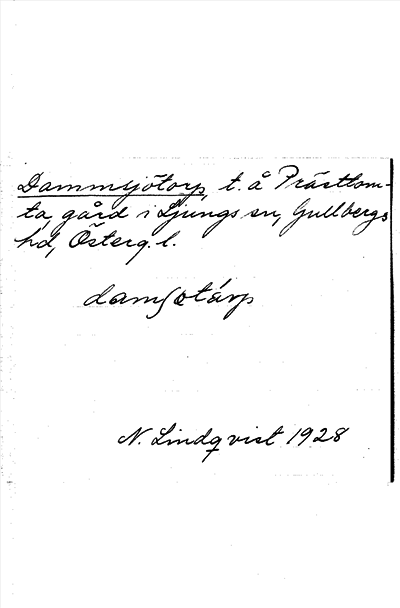 Dammsjötorp, t. å Prästtom-
ta, gård i Ljungs sn, Gullbergs
hd, Österg. l.
damʃøtárp
N. Lindqvist 1928